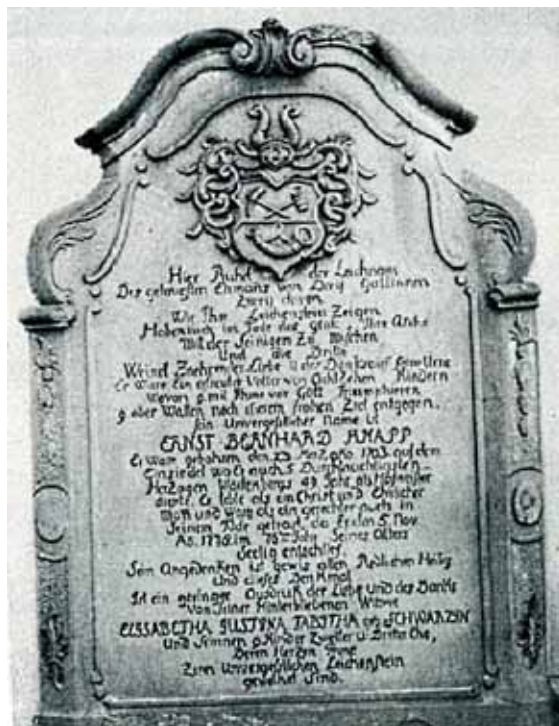 Hier Ruhet der Leichnam
Des getreuesten Ehmans von Drey Gattinnen
Zwey davon
Wie Ihr Leichenstein Zeigen
Haben auch im Tode das Ihre Asche
Mit der Seinigen Zu Mischen
Und die Dritte
Weinet Zaehren der Liebe u der Danckbarkeit
Er Ware Ein erfreuter Vatter von Achtzehen Kindern
Wovon 9 mit Ihme vor Gott Triumphieren
9 aber Wallen noch diesem frohen Ziel entgegen.
Sein Unvergeßlicher Name ist
ERNST BERNHARD KNAPP
Er War gebohren den 23 1703 auf dem
Einsiedel wo Er auch 5 Durchlauchtigsten
Herzogen 49 Jahr als
diente. Er lebte als ein Christ und Ehrlicher
Mann und War als ein gerechter auch in
Seinem Tode getrost, da Er den 5 Nov.
Ao. 1778 im Jahr Seines Alters
Seelig entschlief.
Sein Angedenken ist gewis allen Redlichen Heilig
und dieses Denkmal
Ist ein geringer Ausdruck der Liebe und des Danks
Von Seiner Hinterbliebenen Witwe
ELISABETHA JUSTINA TABITHA geb SCHWARZIN
Und Seinen 9 Kinder Zweiter u. Dritter Ehe,
Deren Herzen Ihme
Zum Unvergeßlichen Leichenstein
geweihet Sind.